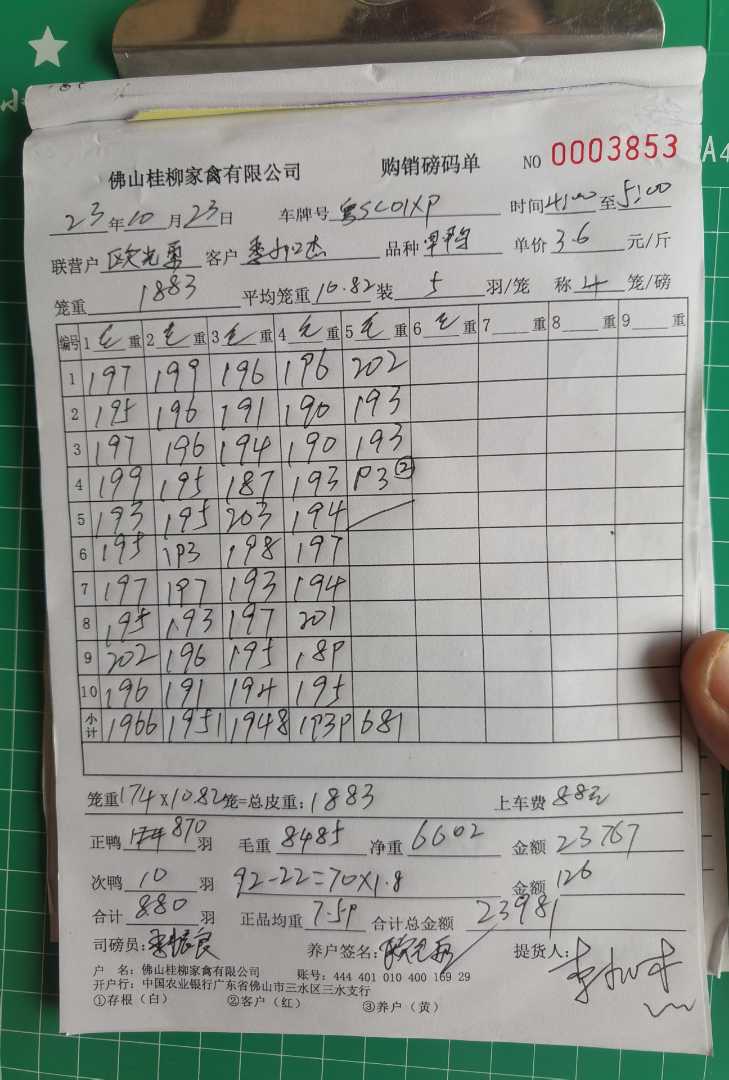 佛山桂柳家禽有限公司 购销磅码单 NO 0003853
23年10月23日 车牌号 粤SC01XP 时间4:00至5:00
联营户 欧光勇 客户 李 杰 品种 单价3.6元/斤
笼重 1883 平均笼重10.82装 5 羽/笼 称 4 笼/磅
编号 1 毛 重 2 毛 重 3 毛 重 4 毛 重 5 毛 重 6 毛 重 7 重 8 重 9 重
1 197 199 196 196 202
2 195 196 191 190 193
3 197 196 194 190 193
4 199 195 187 193 93②
5 193 195 203 194
6 195 193 198 197
7 197 197 193 194
8 195 193 197 201
9 202 196 195 189
10 196 191 194 195
小计 1966 1951 1948 1939 681
笼重174×10.82笼=总皮重:1883 上车费 88元
正鸭 870羽 毛重 8485 净重 6602 金额 23767
次鸭 10 羽 92-22=70×1.8 金额 126
合计 880 羽 正品均重 7.59 合计总金额 23981
司磅员: 李 良 养户签名: 欧光勇 提货人:
户 名:佛山桂柳家禽有限公司 账号:444 401 010 400 169 29
开户行:中国农业银行广东省佛山市三水区三水支行
①存根(白) ②客户(红) ③养户(黄)
A4